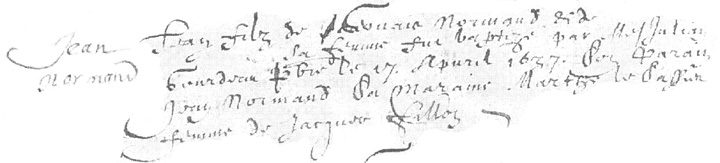 Jean
Normand
Jean filz de Normand et de
sa femme fut baptizé par Mes Julian
Bourdeau pbre le 17. Apuril 1657. Son Parain
Jean Normand Sa Maraine Marthe le
femme de Jacques Fillon